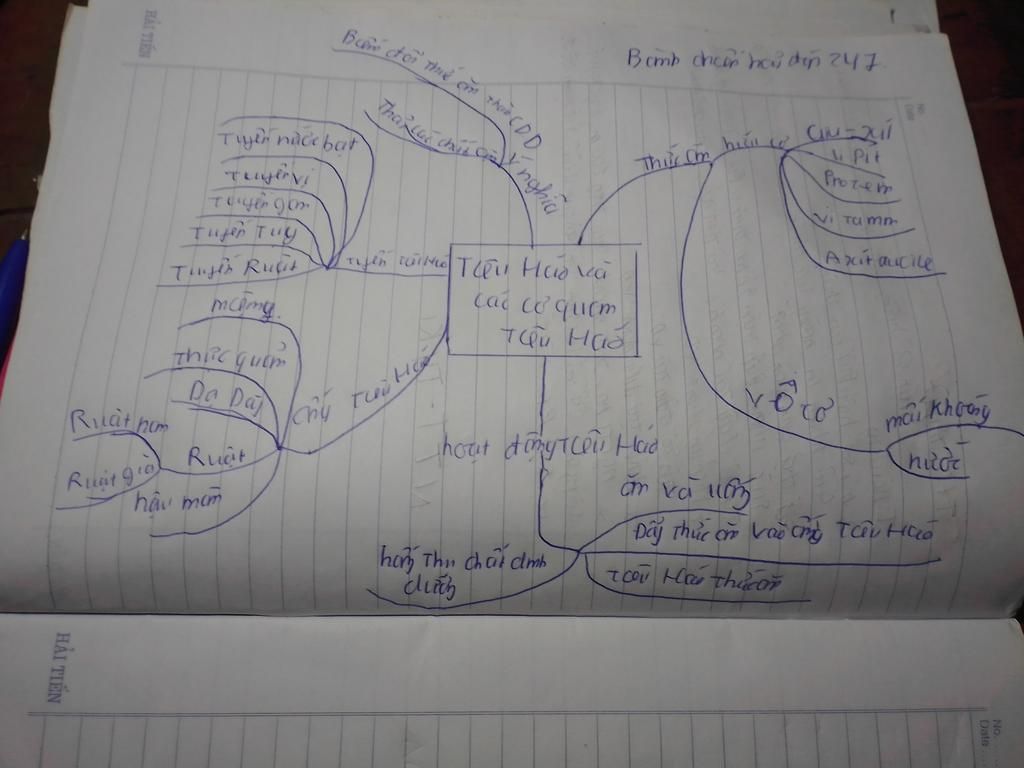 HẢI TIẾN
Biến đổi thức ăn thành CDD
Thải các chất cặn bã
ý nghĩa
Thức ăn
hữu cơ
Glu-xít
Li Pit
Protein
vi tamin
Axit nucleic
vô cơ
muối khoáng
nước
Tuyến nước bọt
Tuyến vị
Tuyến gan
Tuyến Tụy
Tuyến Ruột
Tuyến tiêu hoá
Tiêu Hoá và
các cơ quan
Tiêu Hoá
miệng
thực quản
Dạ Dày
Ruột
Ruột non
Ruột già
hậu môn
ống tiêu Hoá
hoạt động Tiêu Hoá
ăn và uống
Đẩy thức ăn vào ống Tiêu Hoá
Tiêu Hoá thức ăn
hấp thụ chất dinh
dưỡng
HẢI TIẾN
No.
Date